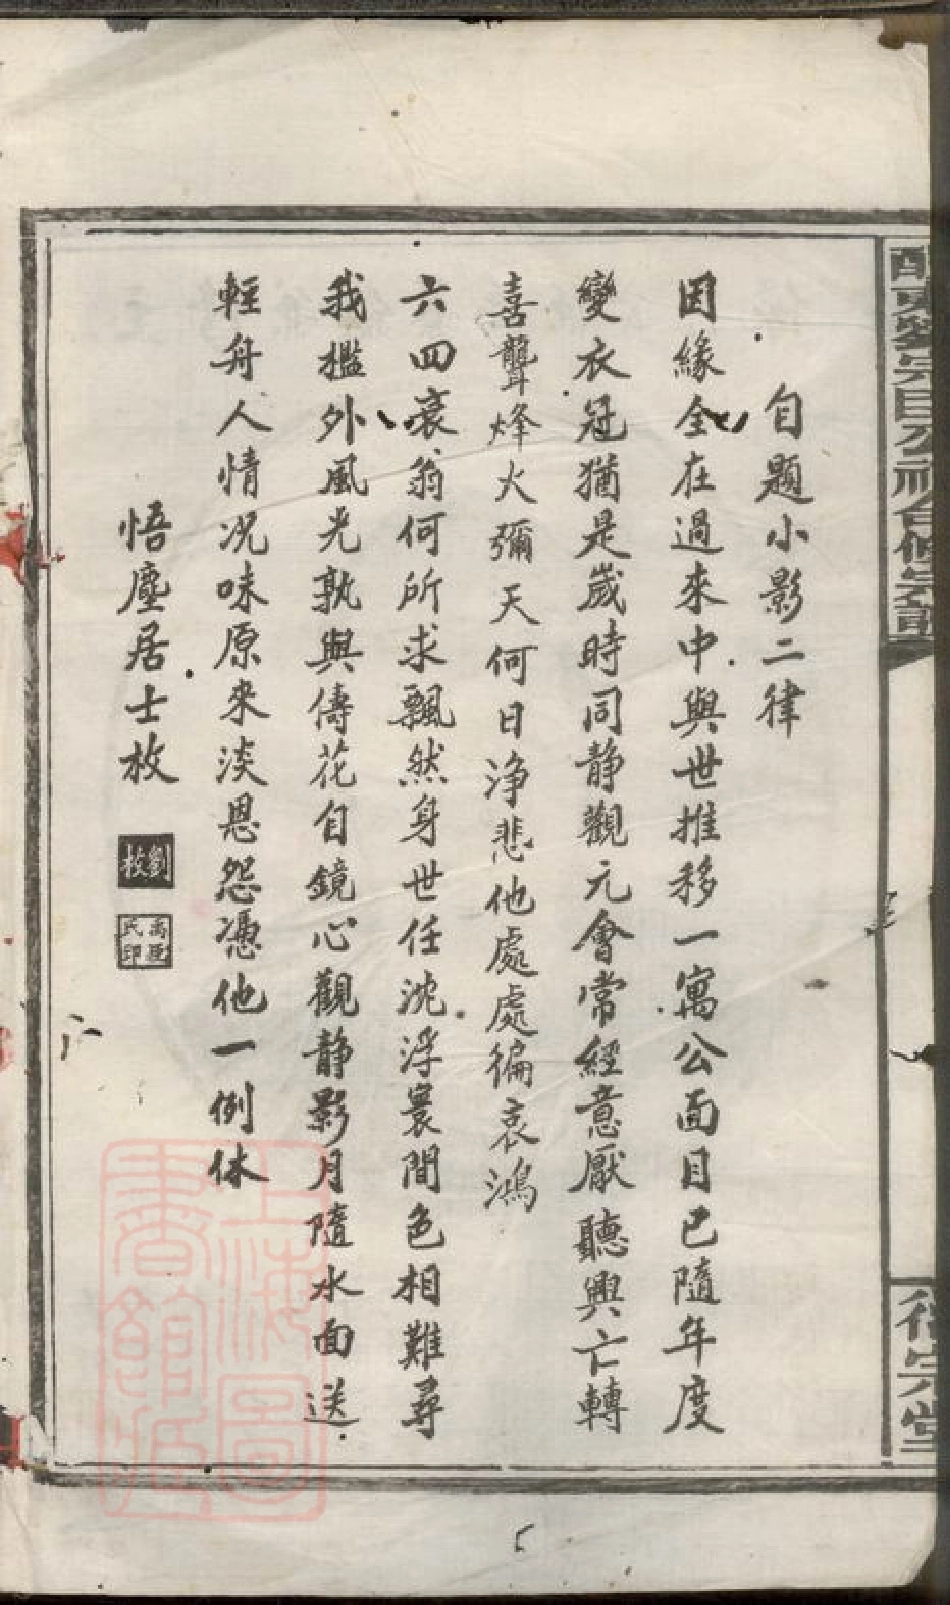 自題小影二律
因緣全在過來中與世推移一寓公面目已隨年度
變衣冠猶是嵗時同静觀元會常經意厭聽興亡轉
喜聾烽火彌天何日浄悲他處處徧哀鴻
六四衰翁何所求飄然身世任沈浮寰間色相難尋
我檻外風光孰與儔花自鏡心觀静影月隨水面送
輕舟人情况味原來淡恩怨憑他一例休
悟塵居士枚
劉枚
民印
劉宗臣公祠合修宗譜
宗堂
上海圖書館藏